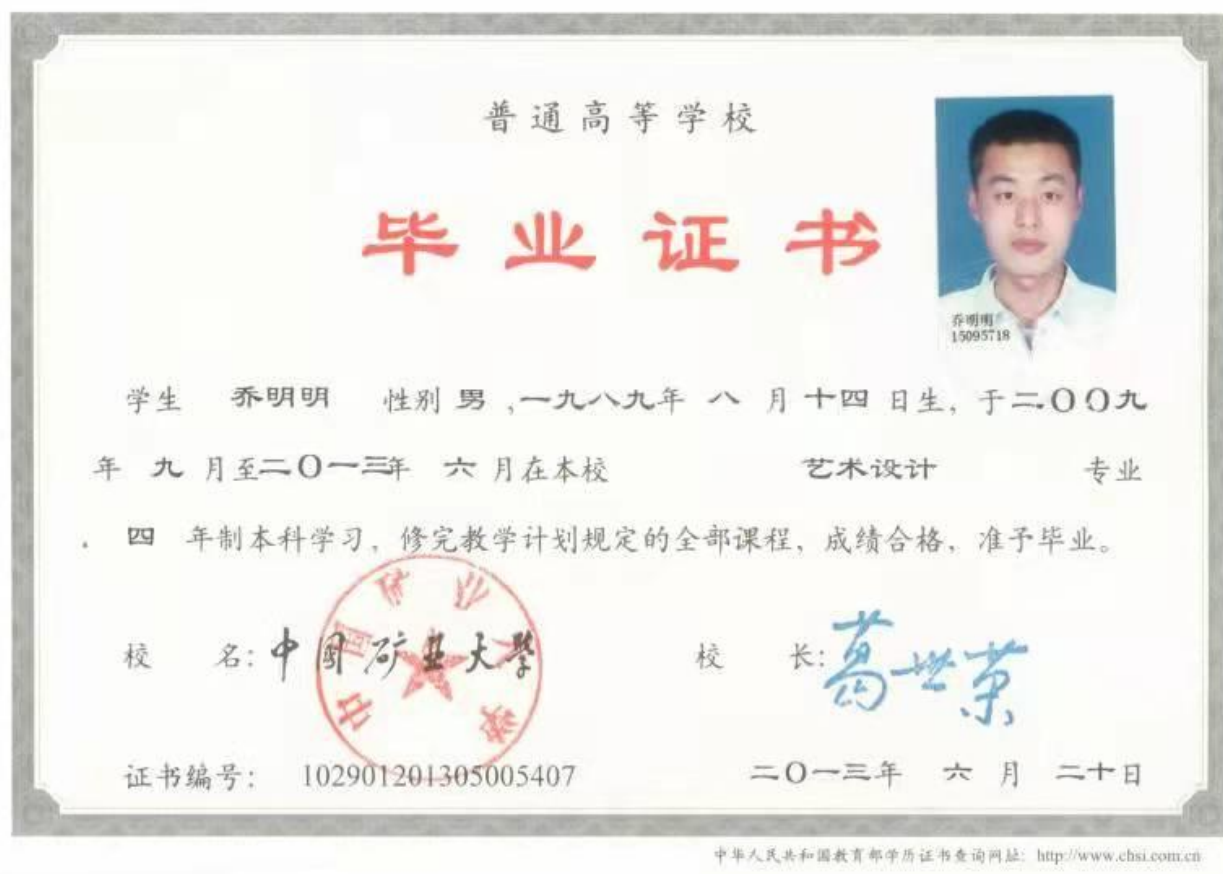 普通高等学校
毕业证书
乔明明
15095718
学生 乔明明 性别 男 ,一九八九年 八 月 十四 日生, 于二〇〇九
年 九 月至二〇一三年 六 月在本校 艺术设计 专业
. 四 年制本科学习, 修完教学计划规定的全部课程, 成绩合格, 准予毕业。
中国矿业大学
校 名: 中国矿业大学 校 长: 葛世荣
证书编号: 102901201305005407 二〇一三年 六 月 二十日
中华人民共和国教育部学历证书查询网址: http://www.chsi.com.cn